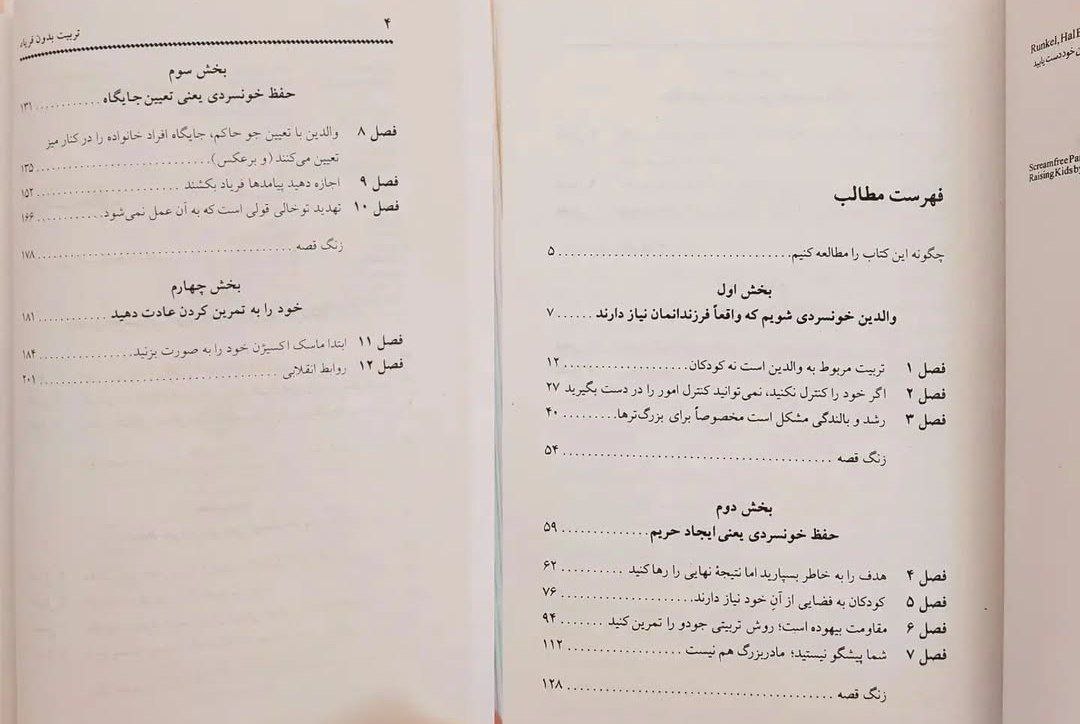 فهرست مطالب
چگونه این کتاب را مطالعه کنیم........................................ ۵
بخش اول
والدین خونسردی شویم که واقعاً فرزندانمان نیاز دارند ...... ۷
فصل ۱ تربیت مربوط به والدین است نه کودکان........................ ۱۲
فصل ۲ اگر خود را کنترل نکنید، نمی‌توانید کنترل امور را در دست بگیرید ۲۷
فصل ۳ رشد و بالندگی مشکل است مخصوصاً برای بزرگ‌ترها......... ۴۰
زنگ قصه ........................................ ۵۴
بخش دوم
حفظ خونسردی یعنی ایجاد حریم............. ۵۹
فصل ۴ هدف را به خاطر بسپارید اما نتیجهٔ نهایی را رها کنید .......... ۶۲
فصل ۵ کودکان به فضایی از آنِ خود نیاز دارند........................ ۷۶
فصل ۶ مقاومت بیهوده است؛ روش تربیتی جودو را تمرین کنید ....... ۹۴
فصل ۷ شما پیشگو نیستید؛ مادربزرگ هم نیست .................... ۱۱۲
زنگ قصه ........................................ ۱۲۸
۴ تربیت بدون فریاد
بخش سوم
حفظ خونسردی یعنی تعیین جایگاه .......... ۱۳۱
فصل ۸ والدین با تعیین جو حاکم، جایگاه افراد خانواده را در کنار میز
تعیین می‌کنند (و برعکس)............................ ۱۳۵
فصل ۹ اجازه دهید پیامدها فریاد بکشند ...................... ۱۵۲
فصل ۱۰ تهدید توخالی قولی است که به آن عمل نمی‌شود............. ۱۶۶
زنگ قصه ........................................ ۱۷۸
بخش چهارم
خود را به تمرین کردن عادت دهید ............ ۱۸۱
فصل ۱۱ ابتدا ماسک اکسیژن خود را به صورت بزنید................. ۱۸۴
فصل ۱۲ روابط انقلابی .................................... ۲۰۱
Runkel, Hal E
خود دست یابید
Screamfree Pa
Raising Kids by